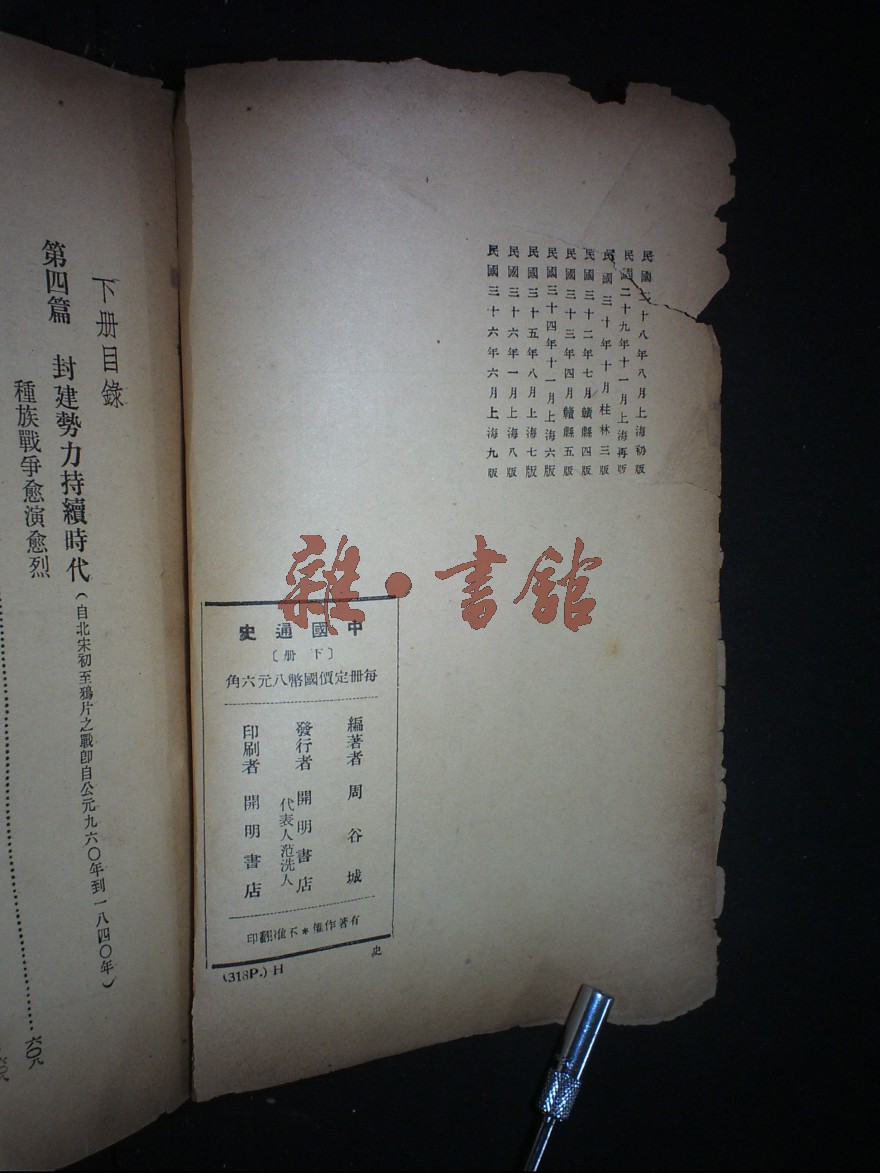 民國二十八年八月上海初版
民國二十九年十一月上海再版
民國三十年十月桂林三版
民國三十二年七月贛縣四版
民國三十三年四月贛縣五版
民國三十四年十一月上海六版
民國三十五年八月上海七版
民國三十六年一月上海八版
民國三十六年六月上海九版
雜·書館
中國通史
〔下册〕
每册定價國幣八元六角
編著者 周谷城
發行者 開明書店
代表人范洗人
印刷者 開明書店
有著作權*不准翻印
史
(318P.) H
下册目錄
第四篇 封建勢力持續時代(自北宋初至鴉片之戰卽自公元九六〇年到一八四〇年)
種族戰爭愈演愈烈